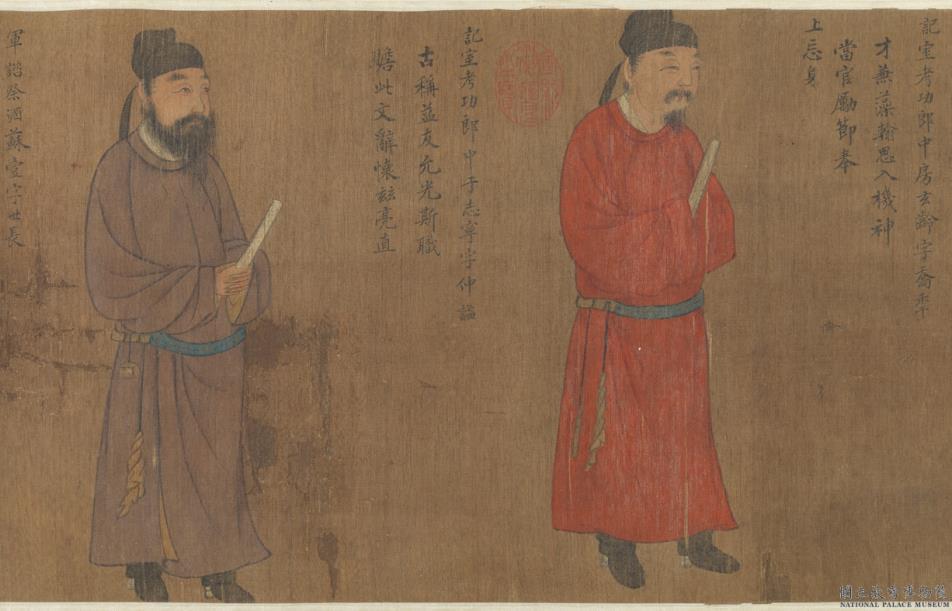 記室考功郎中房玄齡字喬年
才兼藻翰思入機神
當官勵節奉
上忘身
記室考功郎中于志寧字仲謐
古稱益友允光斯職
贍此文辭懷茲亮直
軍諮祭酒蘇壹字世長
國立故宮博物院
NATIONAL PALACE MUSEUM